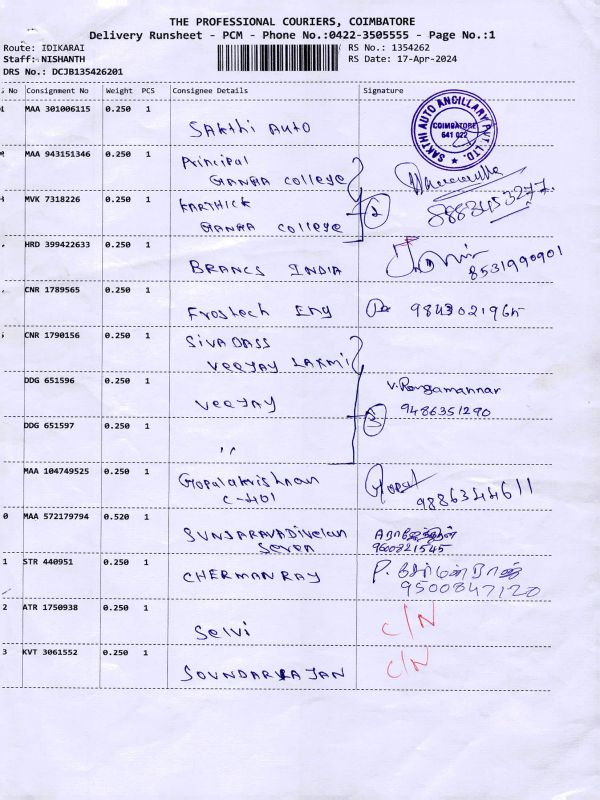 THE PROFESSIONAL COURIERS, COIMBATORE
Delivery Runsheet - PCM - Phone No.:0422-3505555 - Page No.:1
Route: IDIKARAI
RS No.: 1354262
Staff: NISHANTH
RS Date: 17-Apr-2024
DRS No.: DCJB135426201
No Consignment No Weight PCS Consignee Details Signature
MAA 301006115 0.250 1
SAKthi AUTO
SAKTHI AUTO ANCILLARY PVT. LTD.
COIMBATORE
641 022
MAA 943151346 0.250 1
Principal
GANGA College
MVK 7318226 0.250 1
KARTHICK
GANGA College
2
HRD 399422633 0.250 1
BRANCS INDIA
8531990901
CNR 1789565 0.250 1
Frostech Eng
9843021965
CNR 1790156 0.250 1
SIVADASS
VEEJAY LAXMI
DDG 651596 0.250 1
VEEJAY
V. Rengamannar
9486351290
3
DDG 651597 0.250 1
"
MAA 104749525 0.250 1
Gopalakrishnan
C-401
Gopal
9886344611
0 MAA 572179794 0.520 1
SUNDARAVADIVELAN
SEVEN
9600821545
1 STR 440951 0.250 1
CHERMANRAY
P. சேர்மன்ராஜ்
9500847120
2 ATR 1750938 0.250 1
Selvi
C/N
3 KVT 3061552 0.250 1
SOUNDARYAJAN
C/N